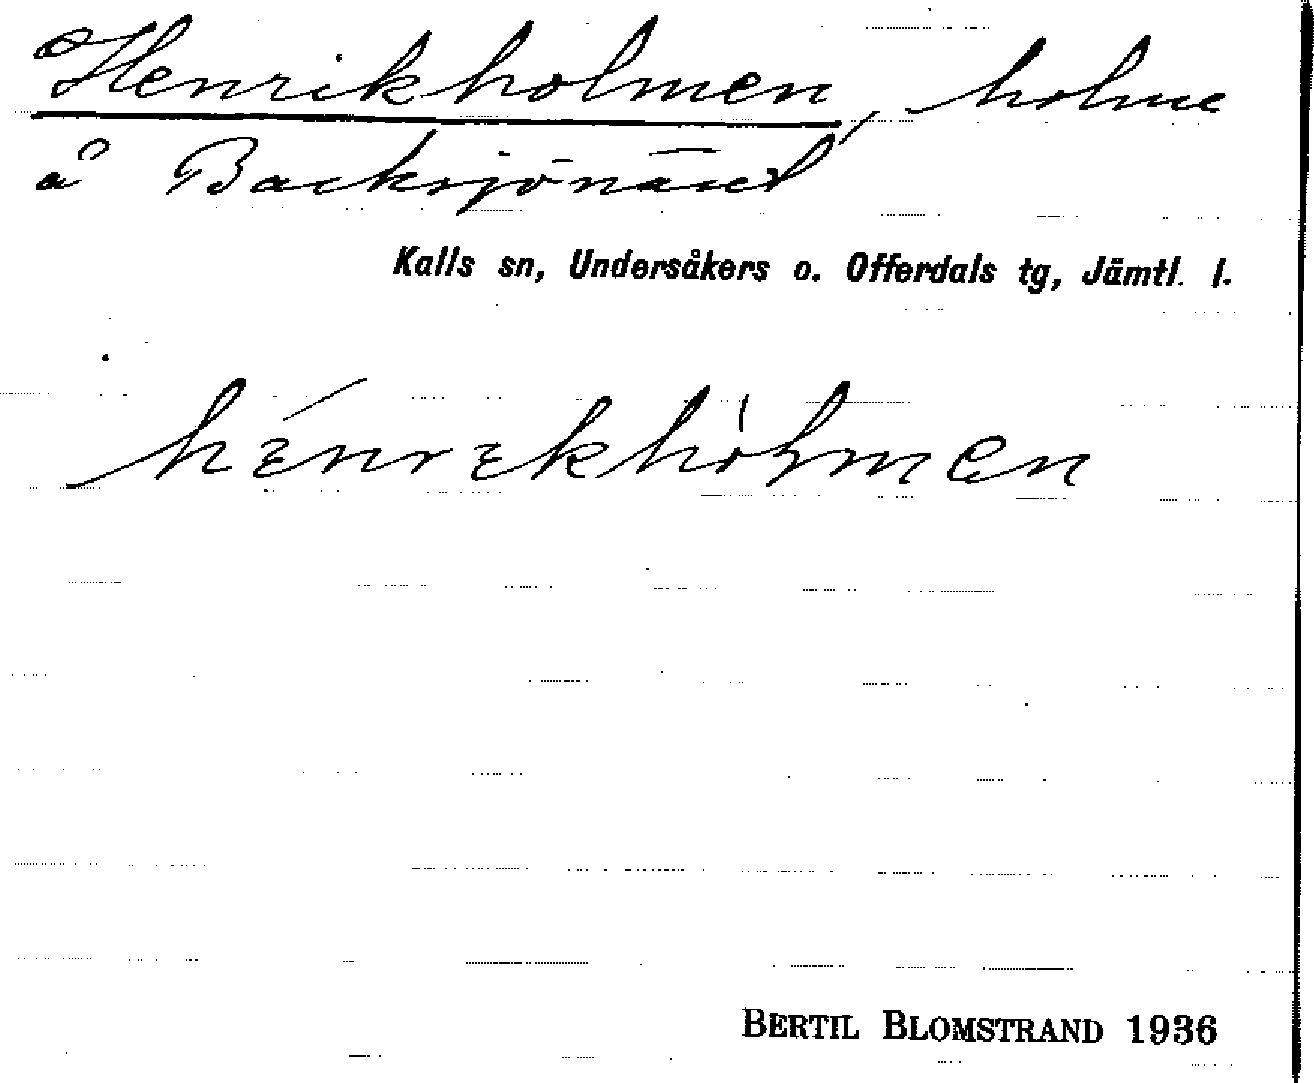 Henrikholmen, holme
å Backsjönäset
Kalls sn, Undersåkers o. Offerdals tg, Jämtl. l.
hɛ́nrɛkhòlmen
BERTIL BLOMSTRAND 1936